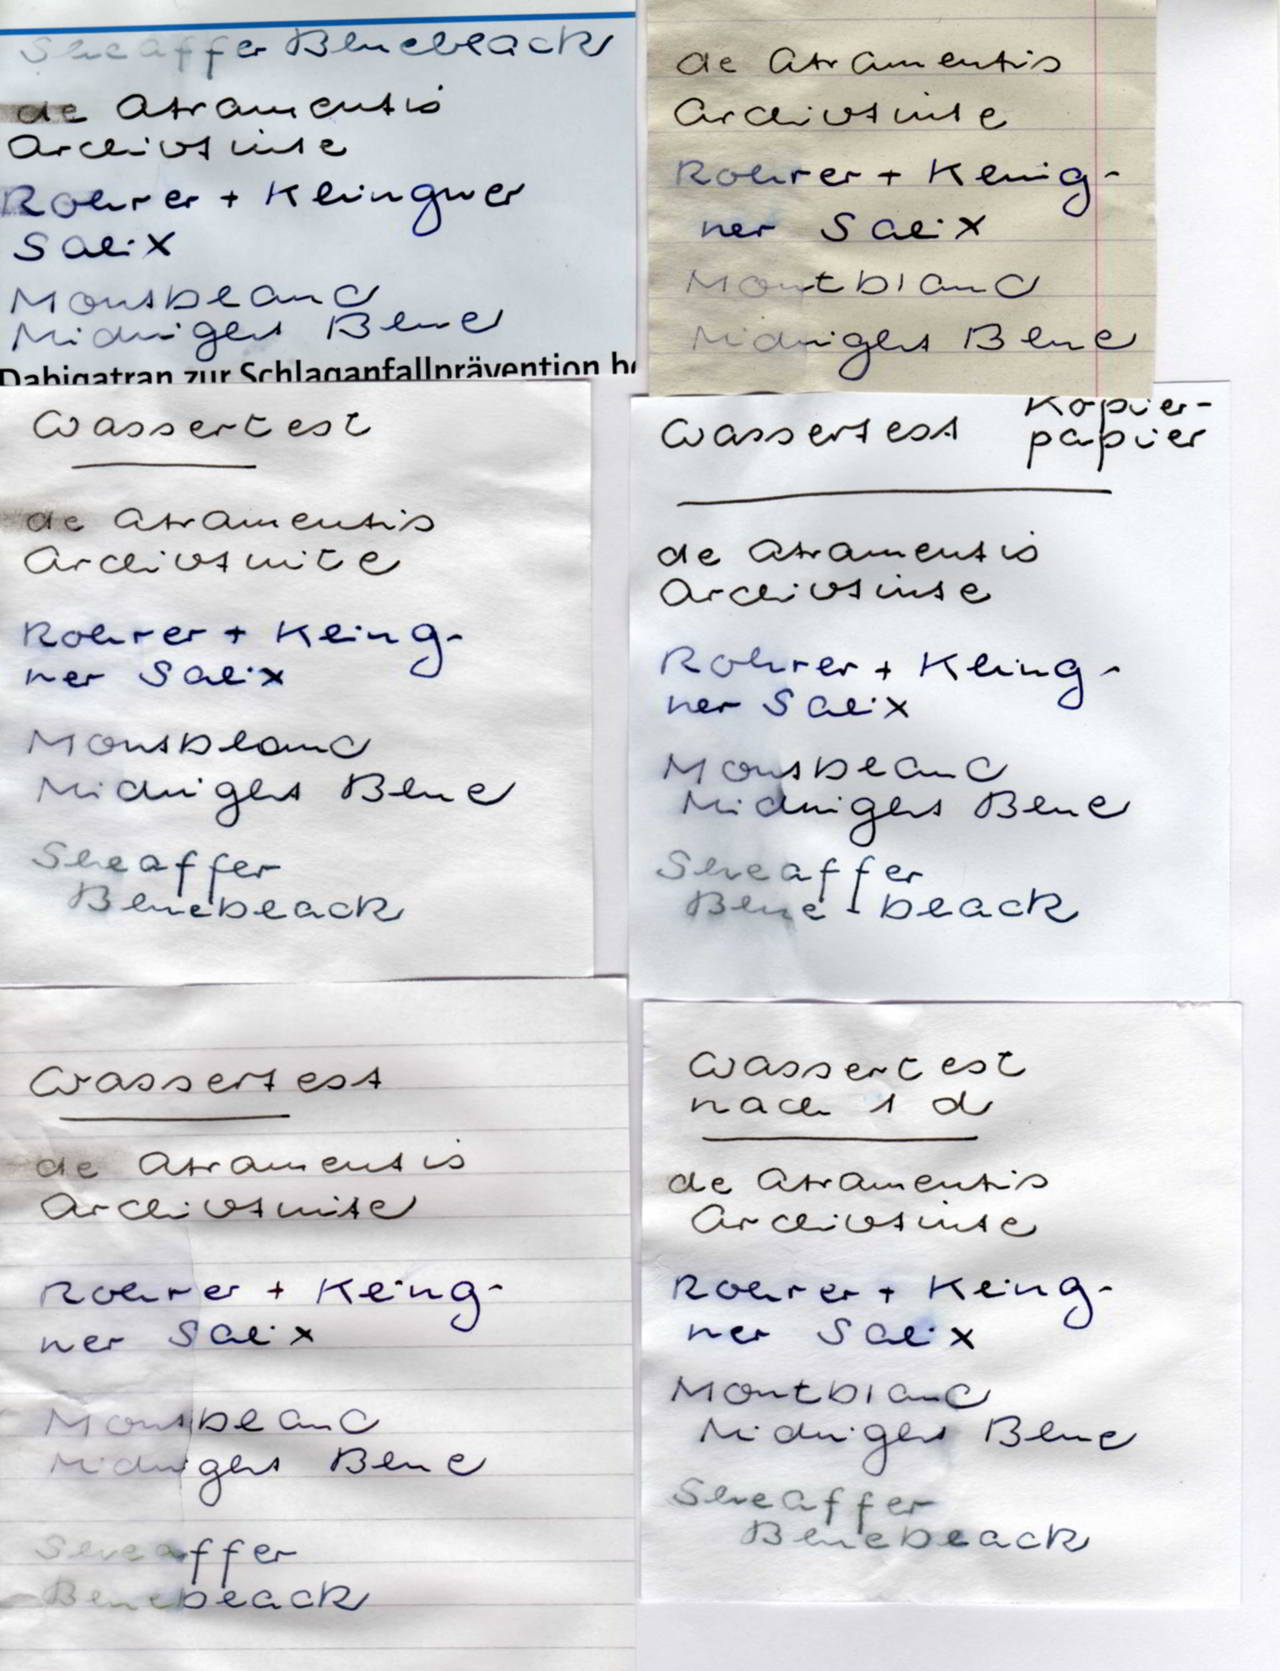 Sheaffer Blueblack
de Atramentis
Archivtinte
Rohrer + Klingner
Salix
Montblanc
Midnight Blue
Dabigatran zur Schlaganfallprävention
de Atramentis
Archivtinte
Rohrer + Klinig-
ner Salix
Montblanc
Midnight Blue
Wassertest
de Atramentis
Archivtinte
Rohrer + Kling-
ner Salix
Montblanc
Midnight Blue
Sheaffer
Blueblack
Wassertest
Kopier-
papier
de Atramentis
Archivtinte
Rohrer + Kling-
ner Salix
Montblanc
Midnight Blue
Sheaffer
Blue-black
Wassertest
de Atramentis
Archivtinte
Rohrer + Kling-
ner Salix
Montblanc
Midnight Blue
Sheaffer
Blueblack
Wassertest
nach 1 d
de Atramentis
Archivtinte
Rohrer + Kling-
ner Salix
Montblanc
Midnight Blue
Sheaffer
Blueblack